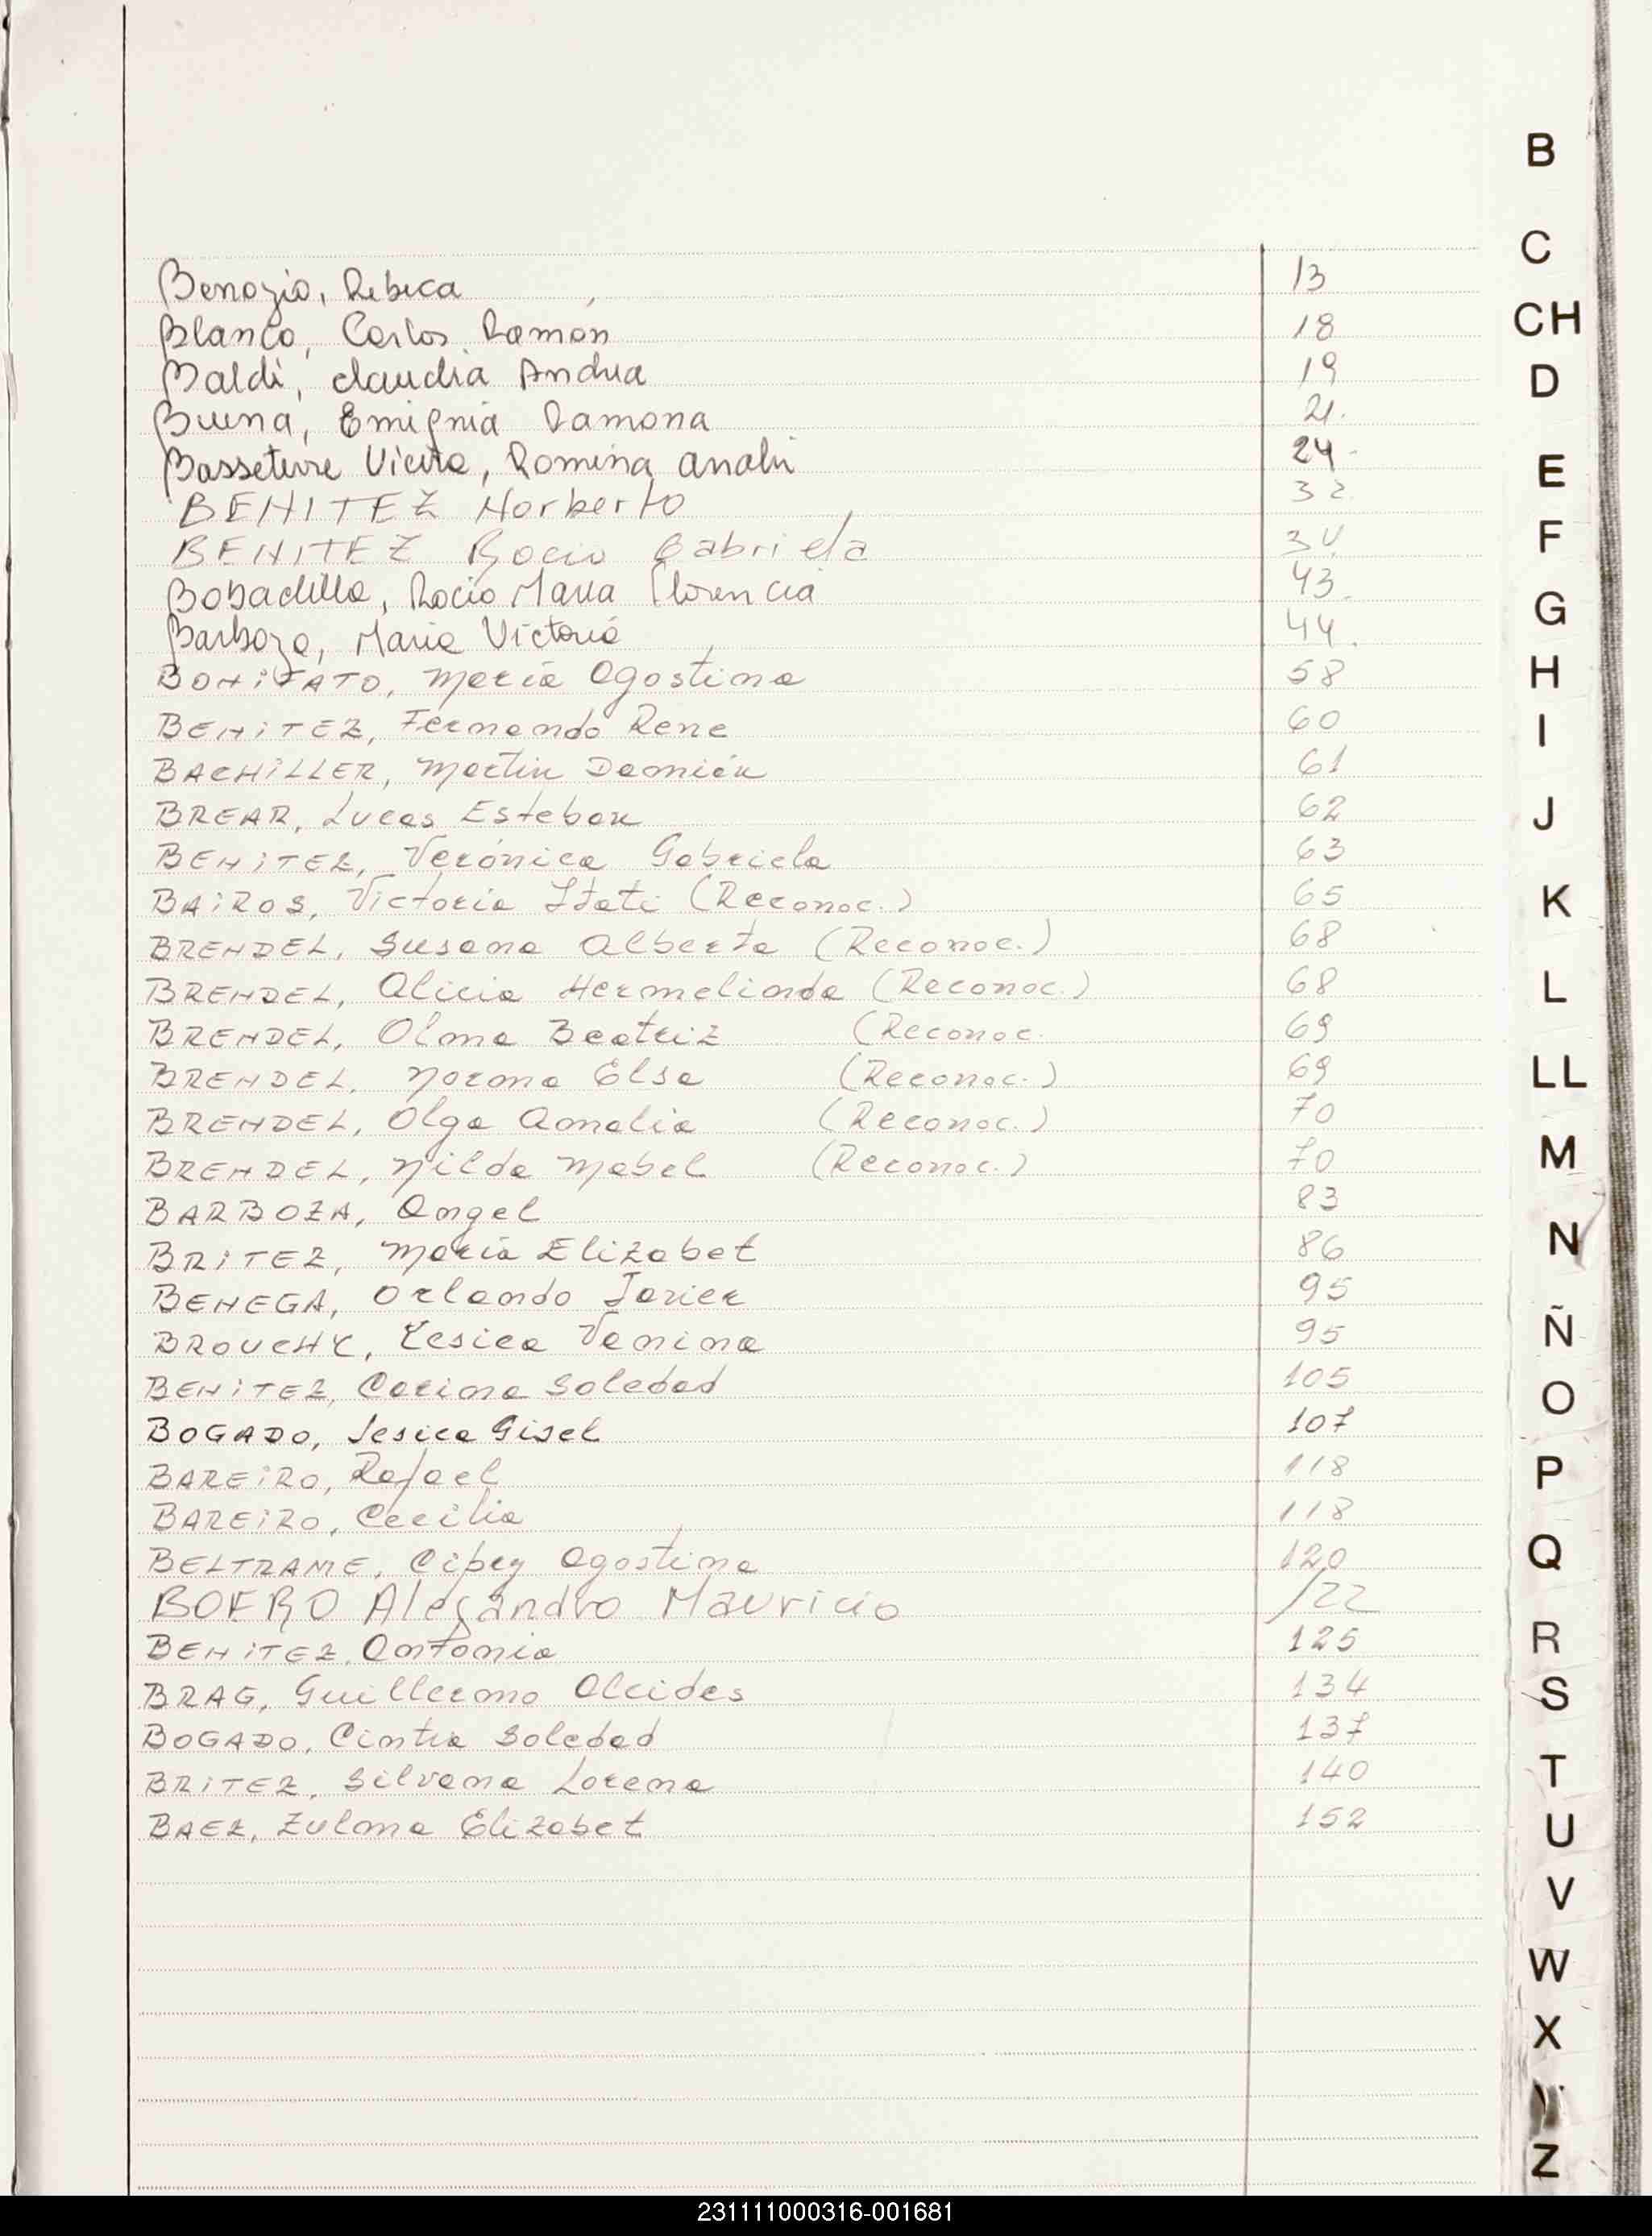 Benozio, Rebeca 13
Blanco, Carlos Ramon 18
Baldi, Claudia Andrea 19
Buena, Ramona 21.
Basseterre Vieira, Romina Anahi 24-
BENITEZ Norberto 32
BENITEZ Rocio Gabriela 34
Bobadilla, Rocio Maria Florencia 43.
Barboza, Maria Victoria 44.
BONIFATO, María Agostina 58
BENITEZ, Fernando Rene 60
BACHILLER, Martin Damián 61
BREAR, Lucas Esteban 62
BENITEZ, Verónica Gabriela 63
BAIROS, Victoria Itati (Reconoc.) 65
BRENDEL, Susana Alberta (Reconoc.) 68
BRENDEL, Alicia Hermelinda (Reconoc.) 68
BRENDEL, Olma Beatriz (Reconoc. 69
BRENDEL, Norma Elsa (Reconoc.) 69
BRENDEL, Olga Amalia (Reconoc.) 70
BRENDEL, Nilda Mabel (Reconoc.) 70
BARBOZA, Angel 83
BRITEZ, María Elizabet 86
BENEGA, Orlando Javier 95
BROUCHY, Yesica Vanina 95
BENITEZ, Carina Soledad 105
BOGADO, Jesica Gisel 107
BAREIRO, Rafael 118
BAREIRO, Cecilia 118
BELTRAME, Agostina 120
BOERO Alejandro Mauricio 122
BENITEZ, Antonia 125
BRAG, Guillermo Alcides 134
BOGADO, Cintia Soledad 137
BRITEZ, Silvana Lorena 140
BAEZ, Zulma Elizabet 152
B
C
CH
D
E
F
G
H
I
J
K
L
LL
M
N
Ñ
O
P
Q
R
S
T
U
V
W
X
Z
231111000316-001681